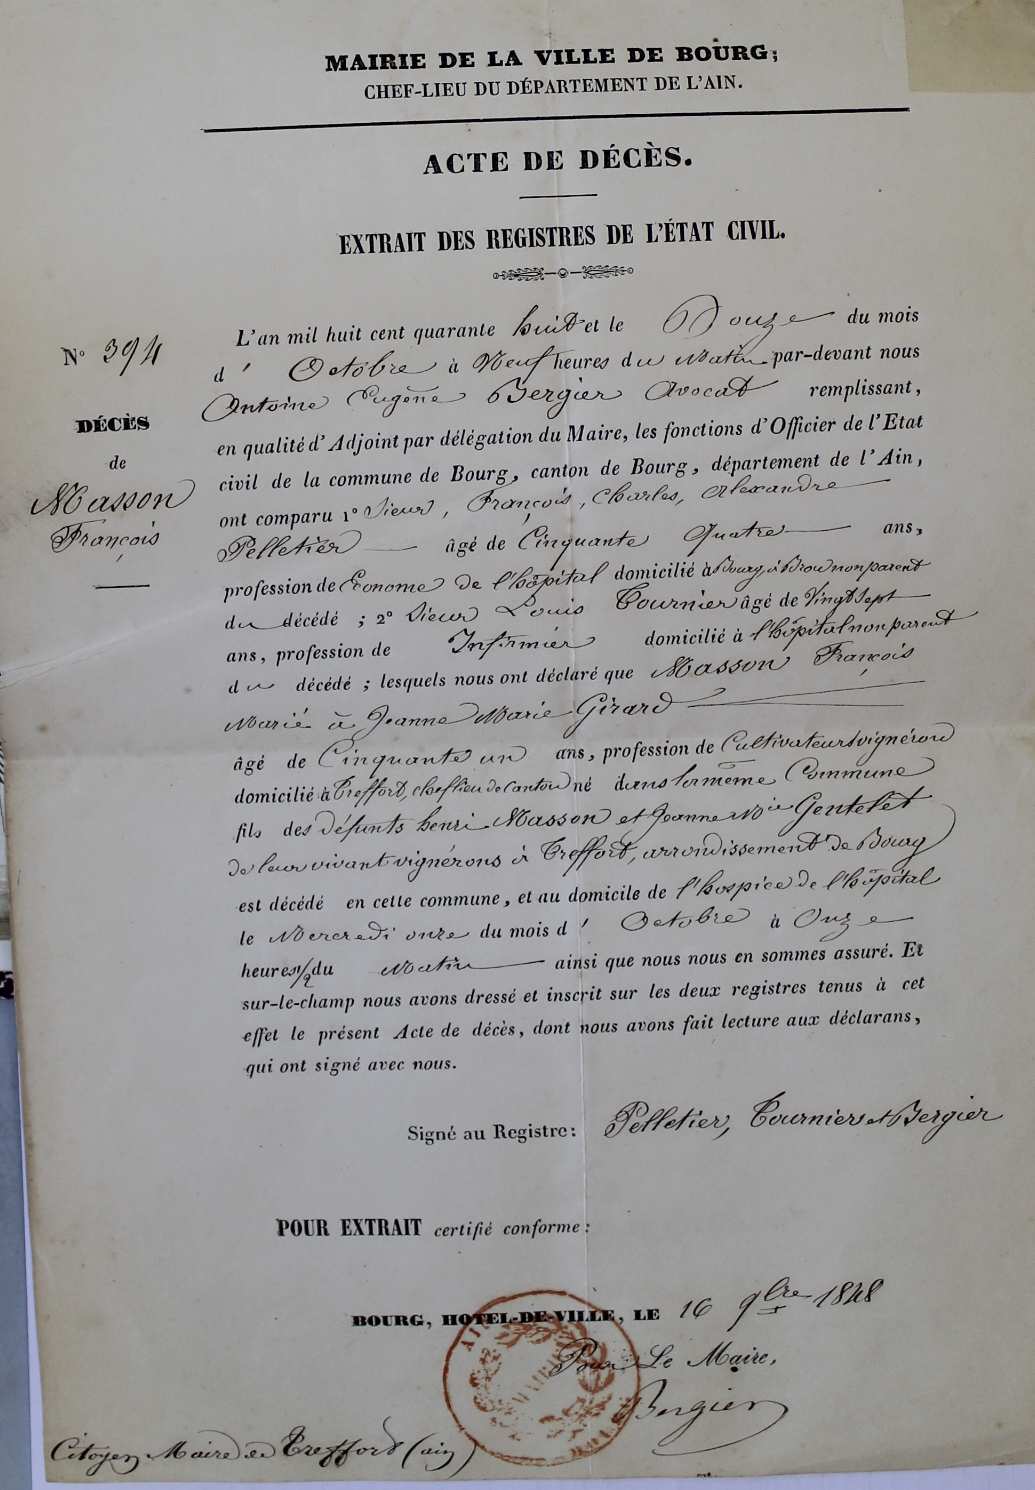 MAIRIE DE LA VILLE DE BOURG;
CHEF-LIEU DU DÉPARTEMENT DE L'AIN.
ACTE DE DÉCÈS.
EXTRAIT DES REGISTRES DE L'ÉTAT CIVIL.
N° 394
DÉCÈS
de
Masson
François
L'an mil huit cent quarante huit et le Douze du mois
d' Octobre à Neuf heures du Matin par-devant nous
Antoine Eugène Bergier Avocat remplissant,
en qualité d'Adjoint par délégation du Maire, les fonctions d'Officier de l'Etat
civil de la commune de Bourg, canton de Bourg, département de l'Ain,
ont comparu 1° Sieur, François, Charles, Alexandre
Pelletier âgé de Cinquante Quatre ans,
profession de Econome de l'hôpital domicilié à Bourg, à Brou non parent
du décédé ; 2° Sieur Louis Tournier âgé de Vingt Sept
ans, profession de Infirmier domicilié à l'hôpital non parent
du décédé ; lesquels nous ont déclaré que Masson François
Marié à Jeanne Marie Girard
âgé de Cinquante un ans, profession de Cultivateur vignéron
domicilié à Treffort, chef lieu de canton né dans la même Commune
fils des défunts henri Masson et Jeanne Mie Gentelet
de leur vivant vignérons à Treffort, arrondissement de Bourg
est décédé en cette commune, et au domicile de l'hospice de l'hôpital
le Mercredi onze du mois d' Octobre à Onze
heures 1/2 du Matin ainsi que nous nous en sommes assuré. Et
sur-le-champ nous avons dressé et inscrit sur les deux registres tenus à cet
effet le présent Acte de décès, dont nous avons fait lecture aux déclarans,
qui ont signé avec nous.
Signé au Registre: Pelletier, Tournier et Bergier
POUR EXTRAIT certifié conforme:
BOURG, HOTEL-DE-VILLE, LE 16 9bre 1848
Pour Le Maire,
Bergier
MAIRIE
Citoyen Maire de Treffort (ain)